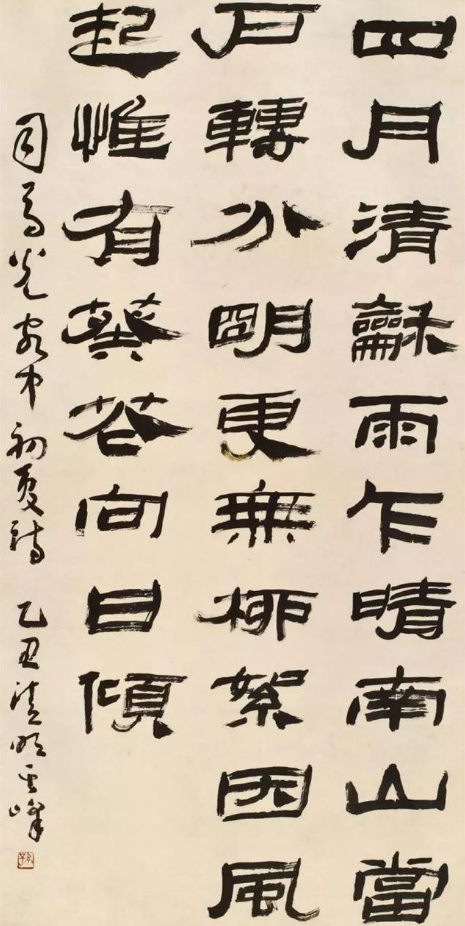 四月清龢雨乍晴南山當
戶轉分明更無柳絮因風
起惟有葵花向日傾
司馬光客中初夏詩 乙丑清明 雲峰